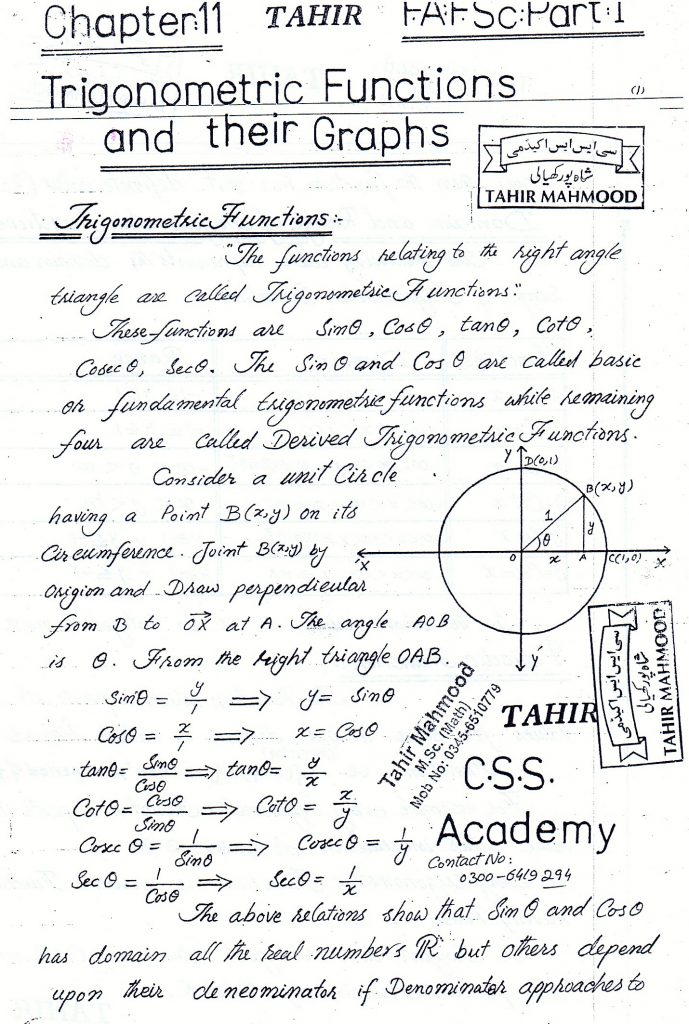 Chapter:11 TAHIR F.A.F.Sc:Part:1
Trigonometric Functions
(1)
and their Graphs
سی ایس ایس اکیڈمی
شاہ پور کھیالی
TAHIR MAHMOOD
Trigonometric Functions:-
"The functions relating to the right angle
triangle are called Trigonometric Functions".
These functions are Sinθ, Cosθ, tanθ, Cotθ,
Cosecθ, Secθ. The Sinθ and Cosθ are called basic
or fundamental trigonometric functions while remaining
four are Called Derived Trigonometric Functions.
Consider a unit Circle
having a Point B(x,y) on its
Circumference. Joint B(x,y) by
origion and Draw perpendicular
from B to OX⃗ at A. The angle AOB
is θ. From the right triangle OAB.
Y D(0,1)
B(x,y)
1 y
θ
'X O x A C(1,0) X
Y'
Sinθ = y/1 ⟹ y = Sinθ
Cosθ = x/1 ⟹ x = Cosθ
tanθ = Sinθ/Cosθ ⟹ tanθ = y/x
Cotθ = Cosθ/Sinθ ⟹ Cotθ = x/y
Cosec θ = 1/Sinθ ⟹ Cosecθ = 1/y
Sec θ = 1/Cosθ ⟹ Secθ = 1/x
Tahir Mahmood
M.Sc. (Math)
Mob No: 0345-6510779
TAHIR
سی ایس ایس اکیڈمی
شاہ پور کھیالی
TAHIR MAHMOOD
C.S.S.
Academy
Contact No:
0300-6419294
The above relations show that Sinθ and Cosθ
has domain all the real numbers ℝ but others depend
upon their deneominator if Denominator approaches to